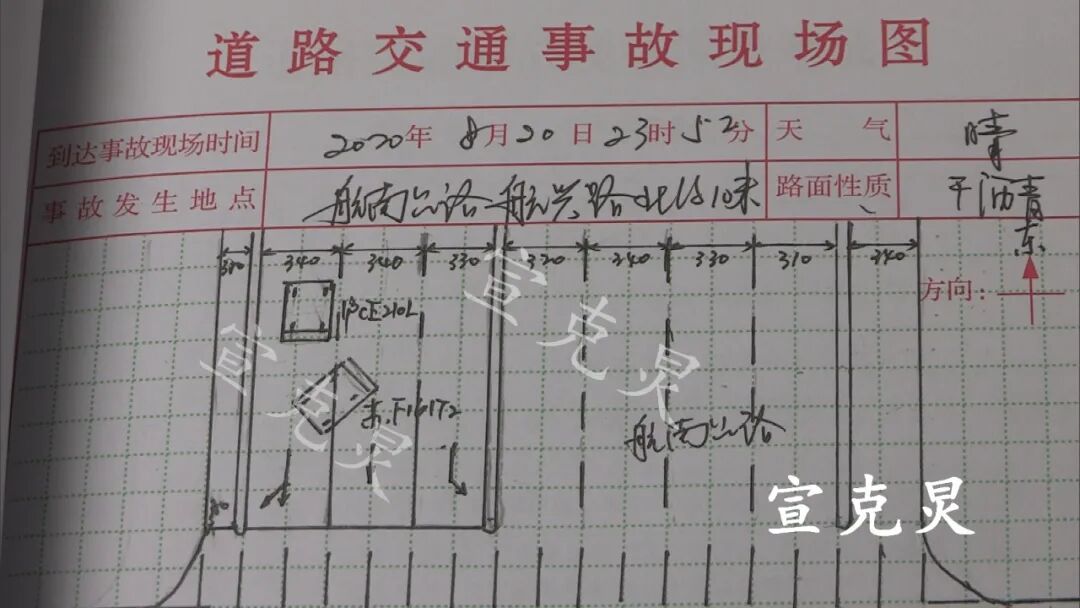 道路交通事故现场图
到达事故现场时间 2020年 8月20日23时52分 天气 晴
事故发生地点 航南公路航兴路北约10米 路面性质 干沥青
东
380 340 340 330 320 340 330 310 340
方向：
航南公路
宣克炅
宣克炅
宣克炅